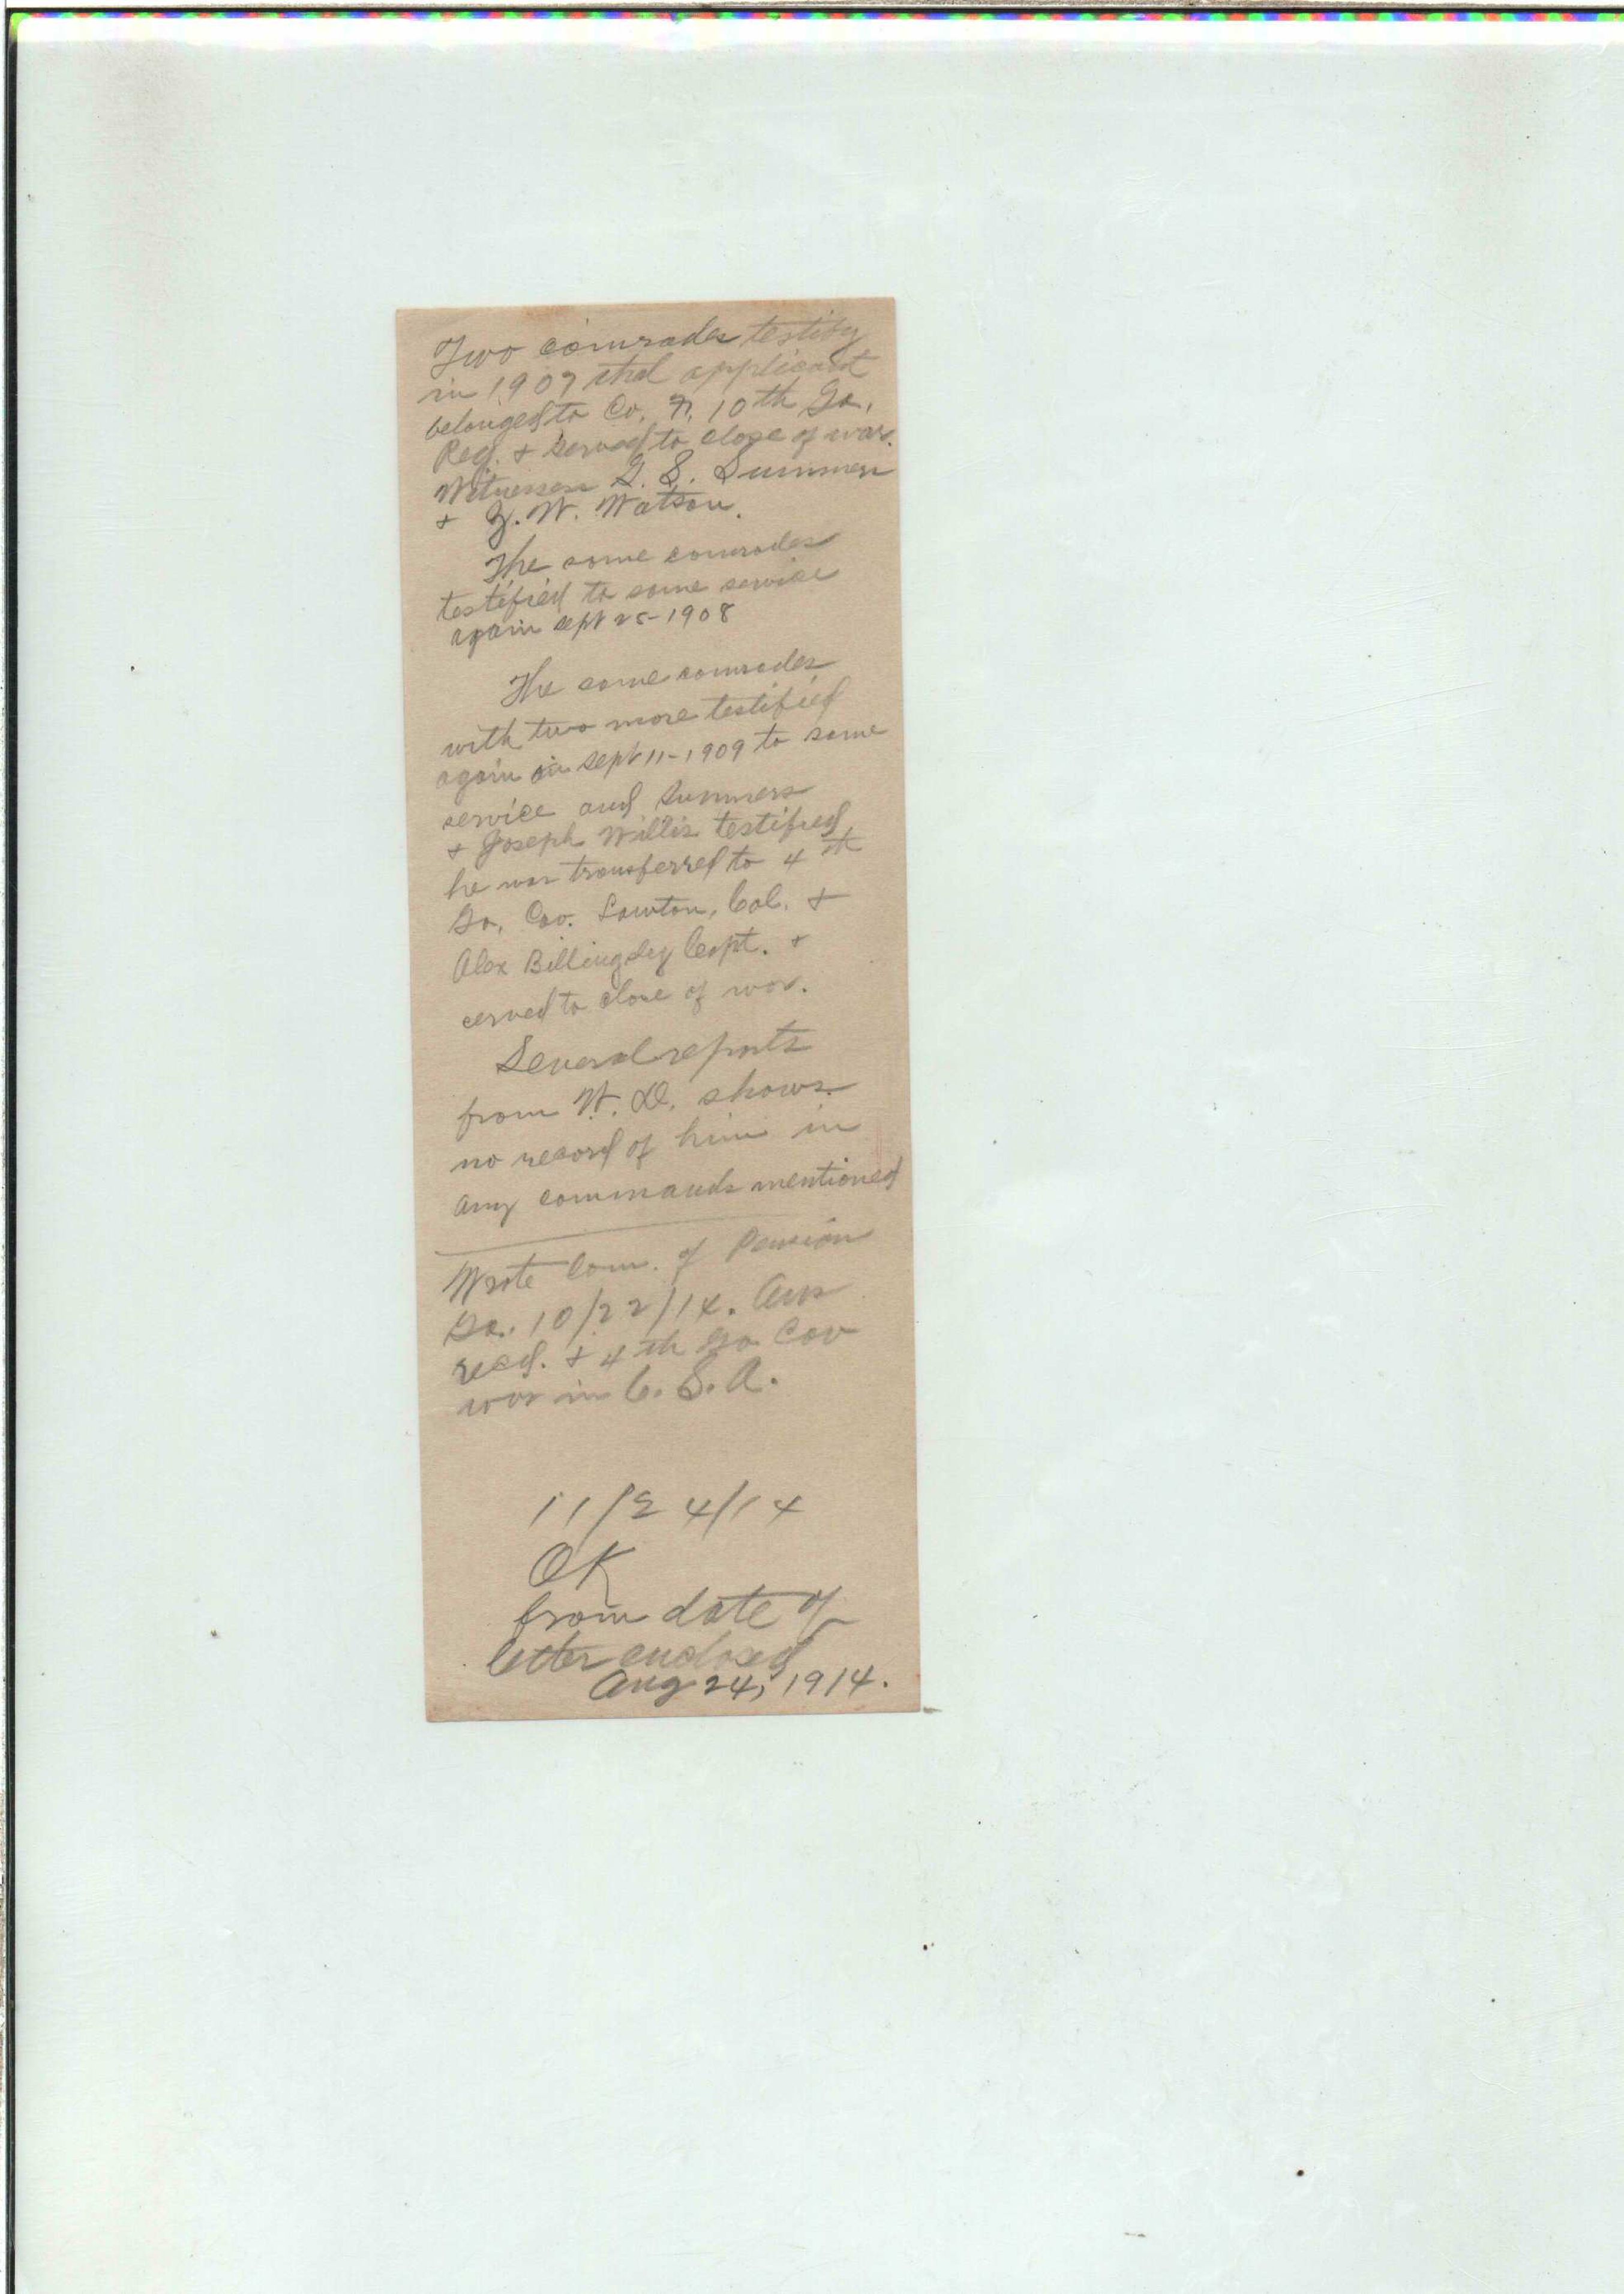 Two comrades testify
in 1907 that applicant
belonged to Co. F, 10th Ga.
Reg. + served to close of war.
Witnesses G. S. Summers
+ Z. W. Watson.
The same comrades
testified to same service
again Sept 25-1908
The same comrades
with two more testified
again on Sept 11-1909 to same
service and Summers
+ Joseph Willis testified
he was transferred to 4th
Ga. Cav. Lawton, Col. +
Alex Billingsley Capt. +
served to close of war.
Several reports
from W. D. shows
no record of him in
any commands mentioned
Wrote Com. of Pension
Ga. 10/22/14. Ans
recd. + 4th Ga Cav
was in C. S. A.
11/24/14
OK
from date of
letter enclosed
Aug 24, 1914.